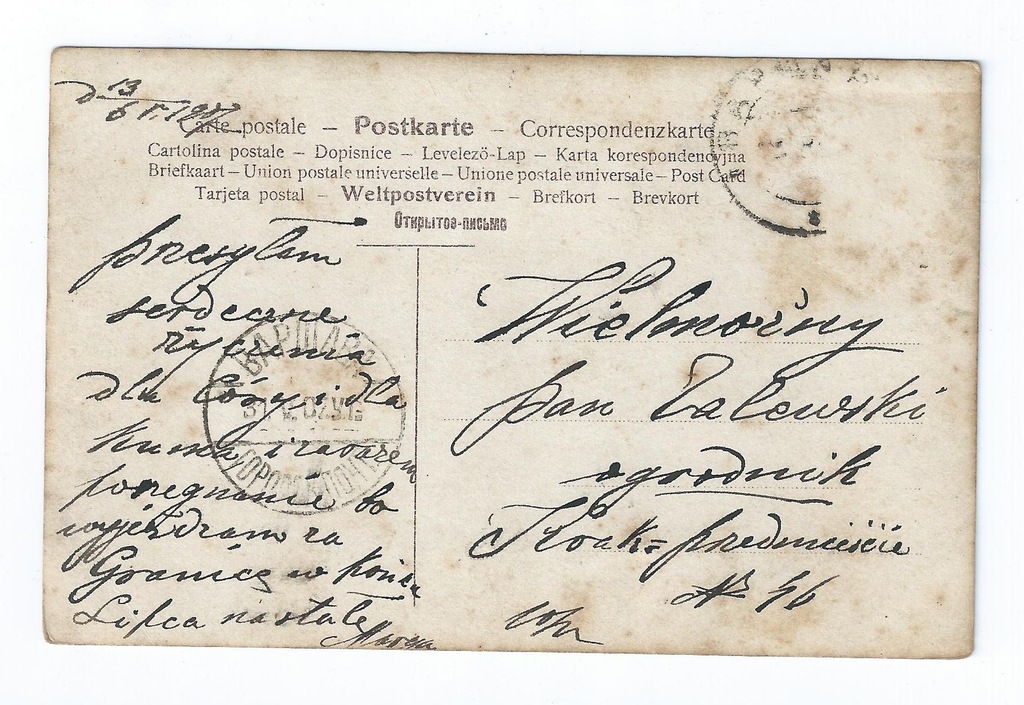 d 13/6 V. 1907
Carte postale – Postkarte – Correspondenzkarte
Cartolina postale – Dopisnice – Levelező-Lap – Karta korespondencyjna
Briefkaart – Union postale universelle – Unione postale universale – Post Card
Tarjeta postal – Weltpostverein – Brefkort – Brevkort
Открытое-письмо
przesyłam
serdeczne
życzenia
dla Córy i dla
kuma i zarazem
porzegnanie bo
wyjeżdżam za
Granicę w końcu
Lipca na stałe
ВАРШАВА
Wielmożny
pan Zalewski
ogrodnik
Krak= predmieście
№ 46